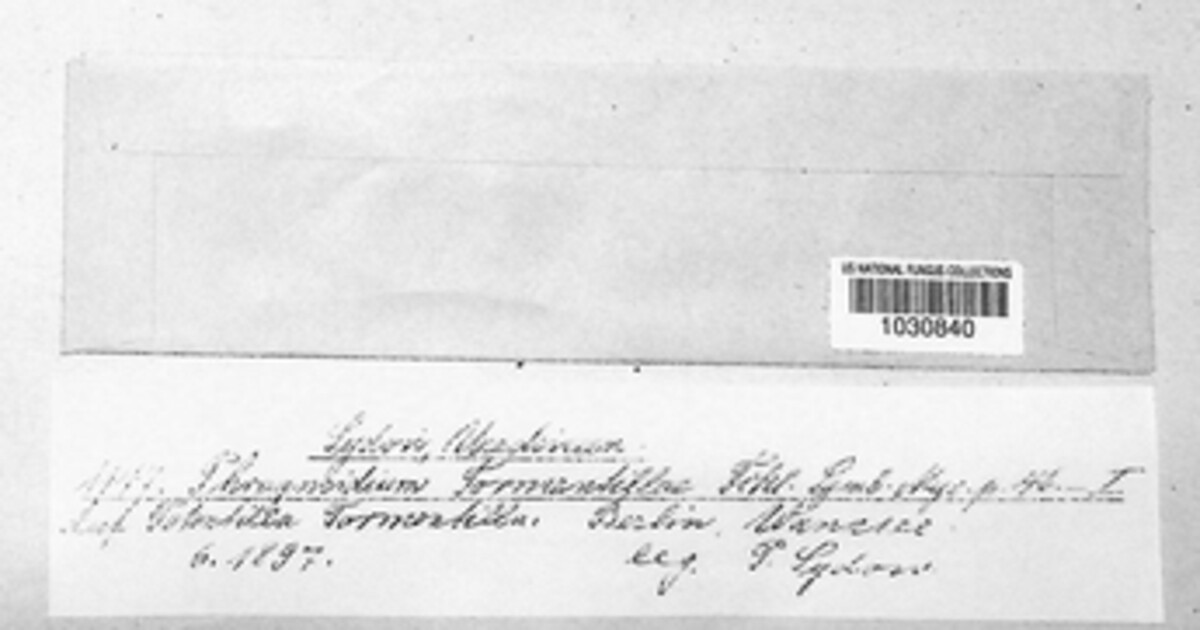 US NATIONAL FUNGUS COLLECTIONS
1030840
Sydow, Uredineen
Phragmidium Tormentillae Fckl. Symb. Myc. p. 46. — I
Auf Potentilla Tormentilla. Berlin, Wannsee.
6. 1897. leg. P. Sydow.